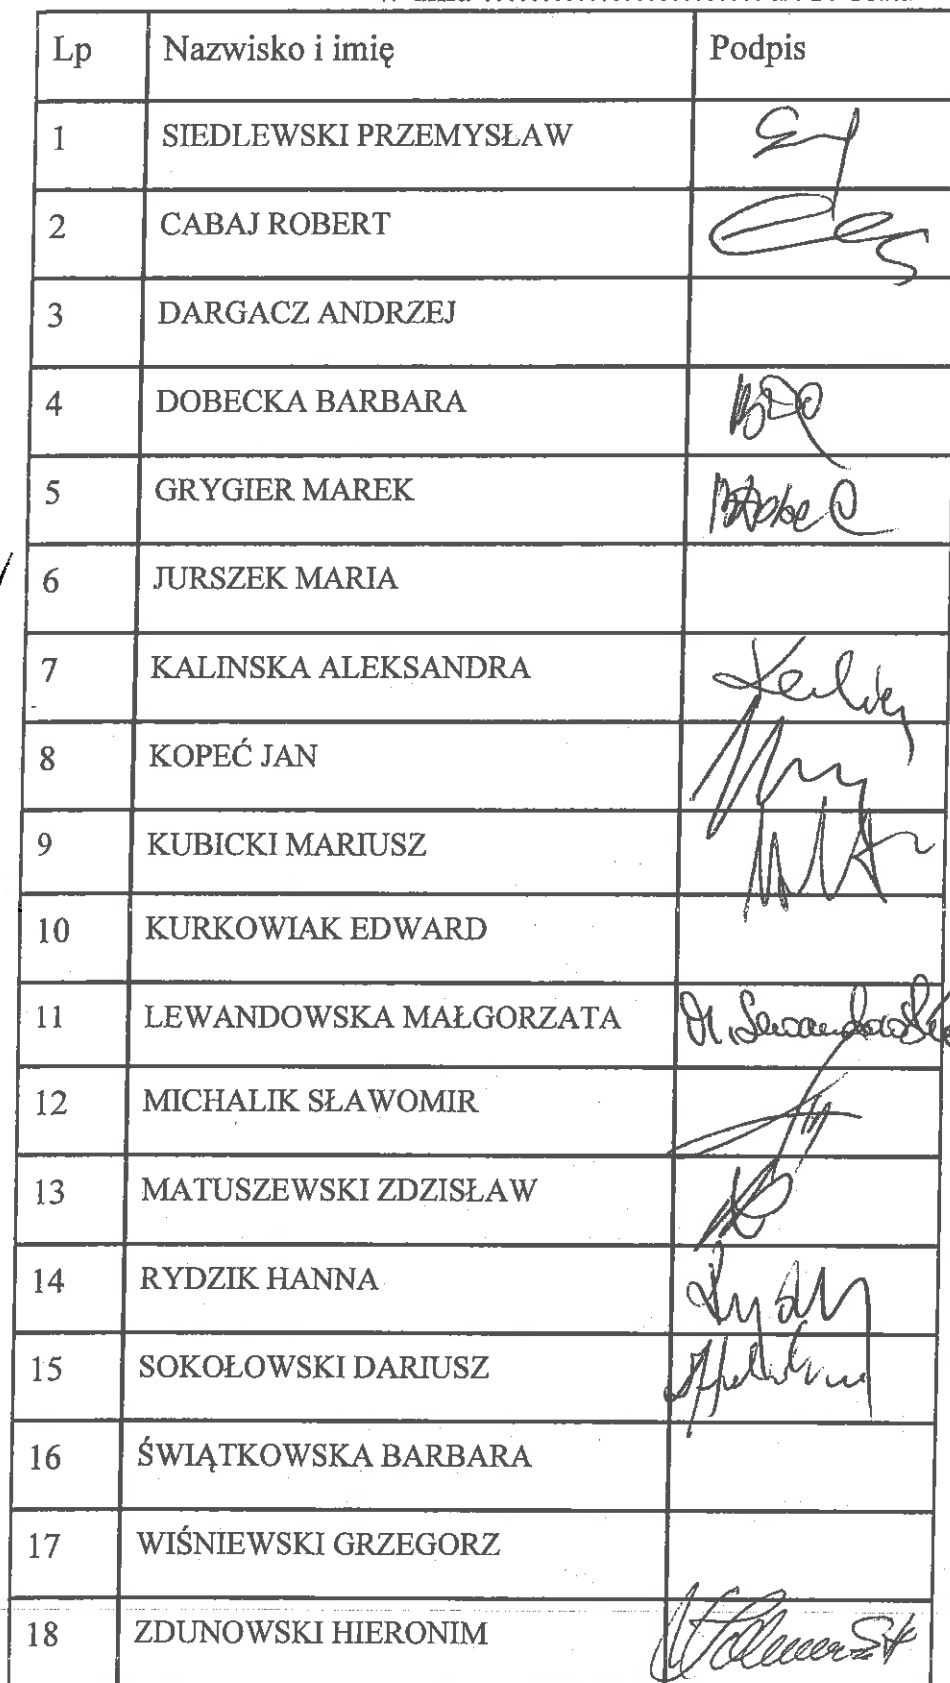 Lp Nazwisko i imię Podpis
1 SIEDLEWSKI PRZEMYSŁAW
2 CABAJ ROBERT
3 DARGACZ ANDRZEJ
4 DOBECKA BARBARA
5 GRYGIER MAREK
6 JURSZEK MARIA
7 KALINSKA ALEKSANDRA
8 KOPEĆ JAN
9 KUBICKI MARIUSZ
10 KURKOWIAK EDWARD
11 LEWANDOWSKA MAŁGORZATA M. Lewandowska
12 MICHALIK SŁAWOMIR
13 MATUSZEWSKI ZDZISŁAW
14 RYDZIK HANNA
15 SOKOŁOWSKI DARIUSZ
16 ŚWIĄTKOWSKA BARBARA
17 WIŚNIEWSKI GRZEGORZ
18 ZDUNOWSKI HIERONIM